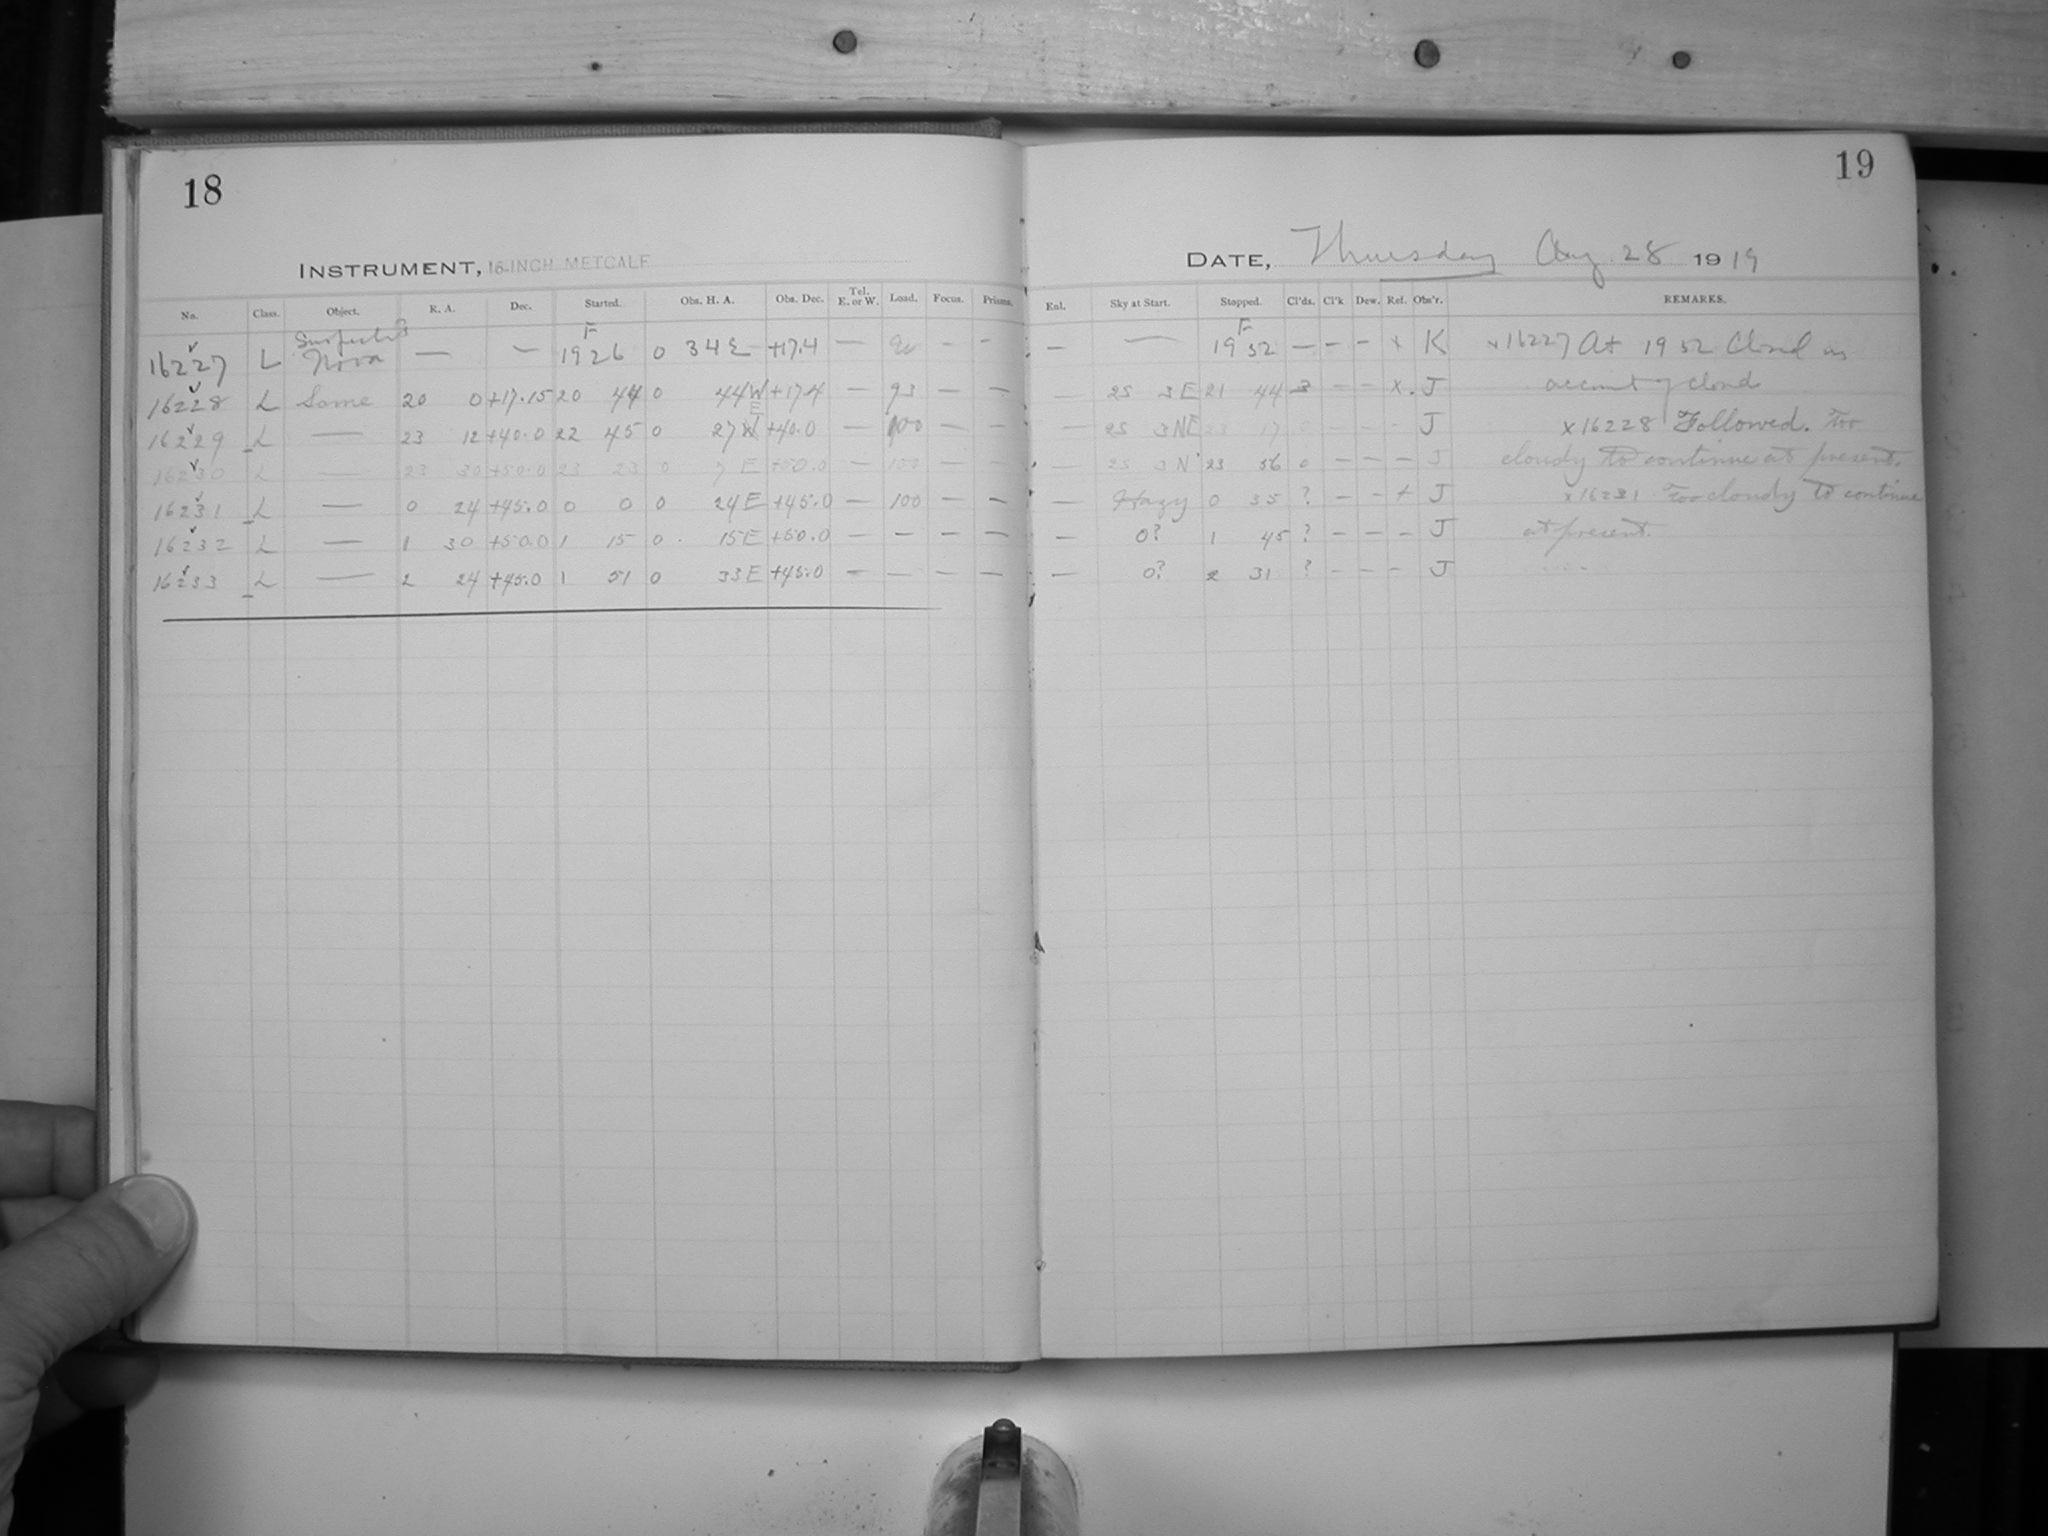 18
19
INSTRUMENT, 16-INCH METCALF
DATE, Thursday Aug 28 1919
No. Class. Object. R. A. Dec. Started. Obs. H. A. Obs. Dec. Tel. E. or W. Load. Focus. Prisms. Enl. Sky at Start. Stopped. Cl'ds. Cl'k Dew. Ref. Obs'r. REMARKS.
Suspected F F
16227 L Nova — — 19 26 0 34 E +17.4 — 90 - - — — 19 32 — — – x K x16227 At 19 32 Closed on
16228 L Same 20 0 +17.15 20 44 0 44 W +17.4 — 93 — — — 25 3 E 21 44 3 - - x. J account of cloud
E
16229 L — 23 12 +40.0 22 45 0 27 W +40.0 — 100 — — — 25 3 NE 23 17 0 - - - J x16228 Followed. Too
16230 L — 23 30 +50.0 23 23 0 7 E +50.0 — 100 — — - 25 3 N 23 56 0 - - - J cloudy to continue at present.
16231 L — 0 24 +45.0 0 0 0 24 E +45.0 — 100 — — — Hazy 0 35 ? - - + J x16231 Too cloudy to continue
16232 L — 1 30 +50.0 1 15 0 15 E +50.0 — — — — — 0? 1 45 ? - - - J at present.
16233 L — 2 24 +45.0 1 51 0 33 E +45.0 — — — — — 0? 2 31 ? - - - J